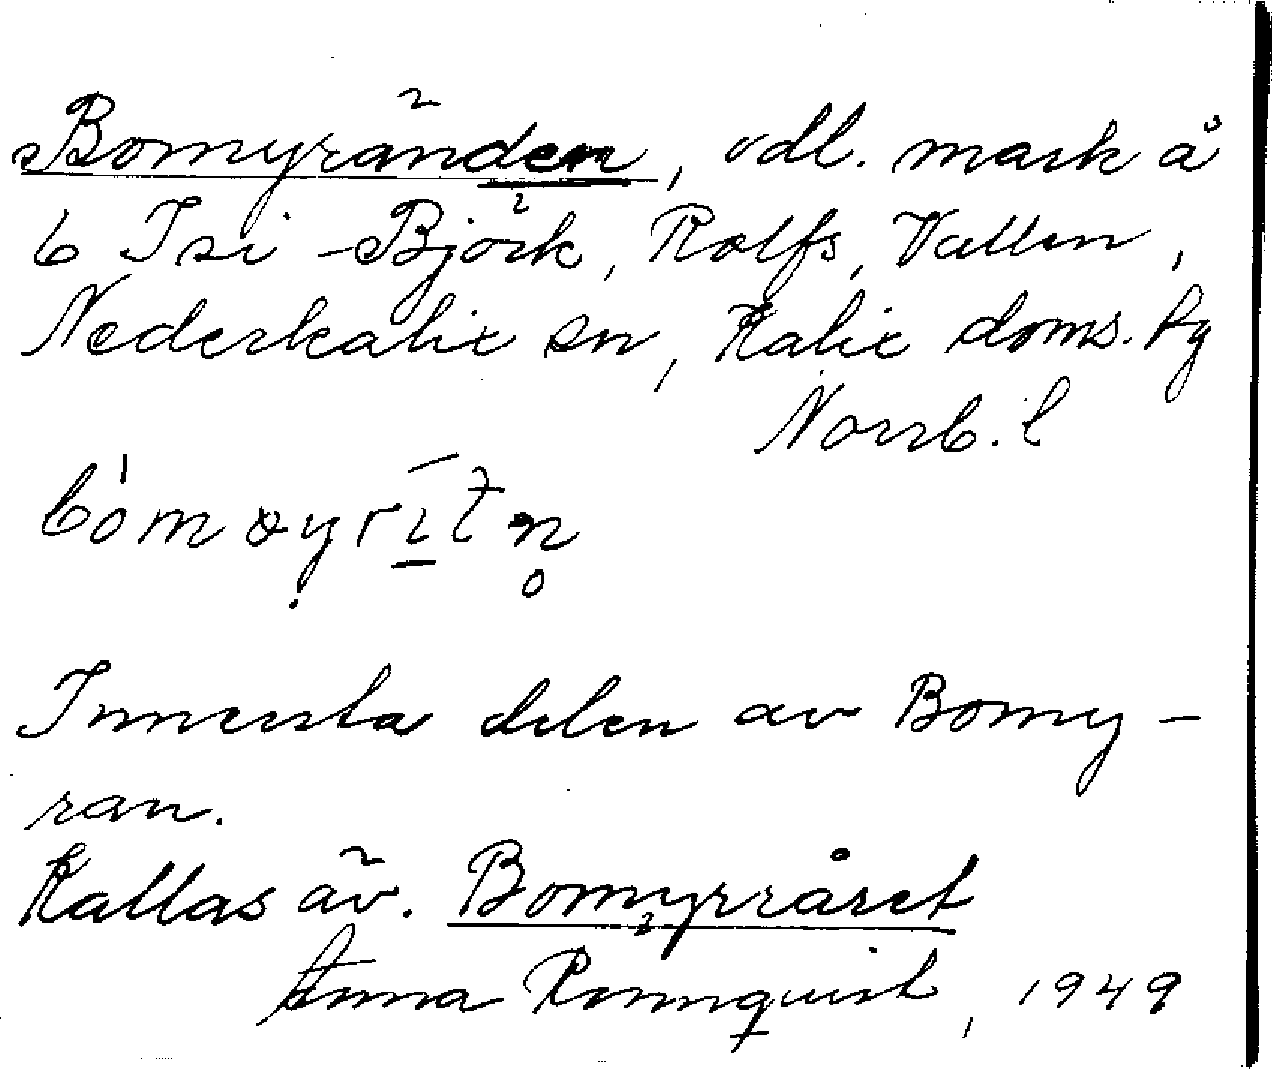 Bomyränden, odl. mark å
6 Isi - Björk, Rolfs, Vallen,
Nederkalix sn, Kalix doms. hg
Norrb. l
Innersta delen av Bomy-
ran.
Kallas äv. Bomyrråset
Anna Rönnquist, 1949